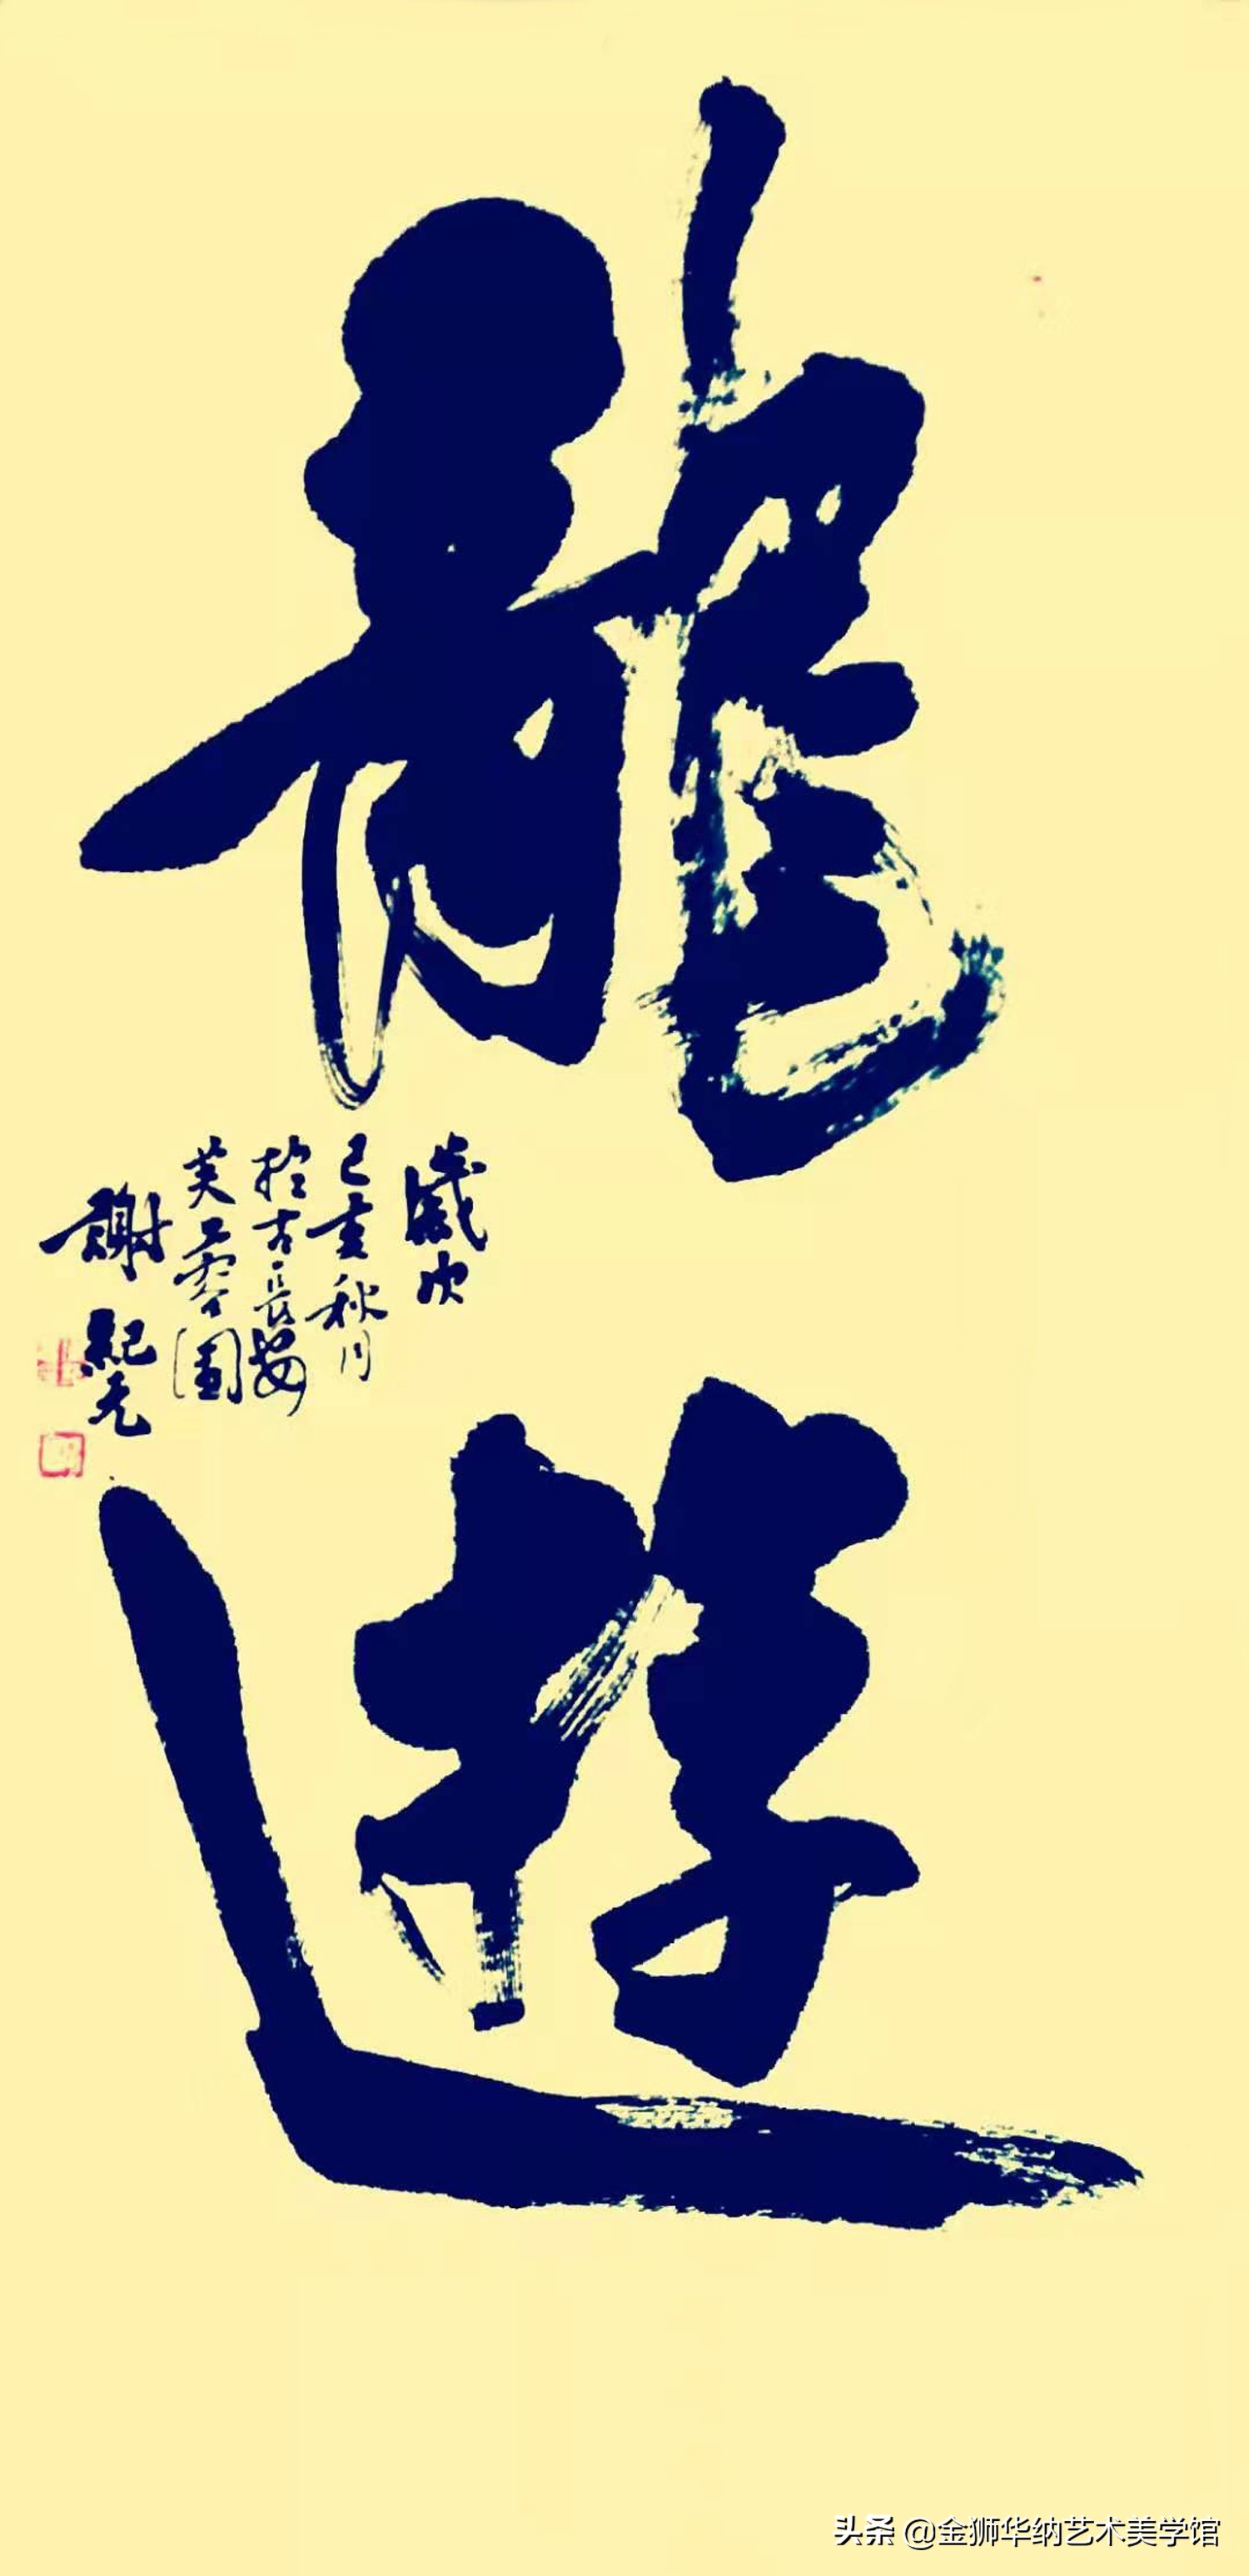 龍遊
歲次
己亥秋月
於古長安
芙蓉園
謝紀元
头条 @金狮华纳艺术美学馆